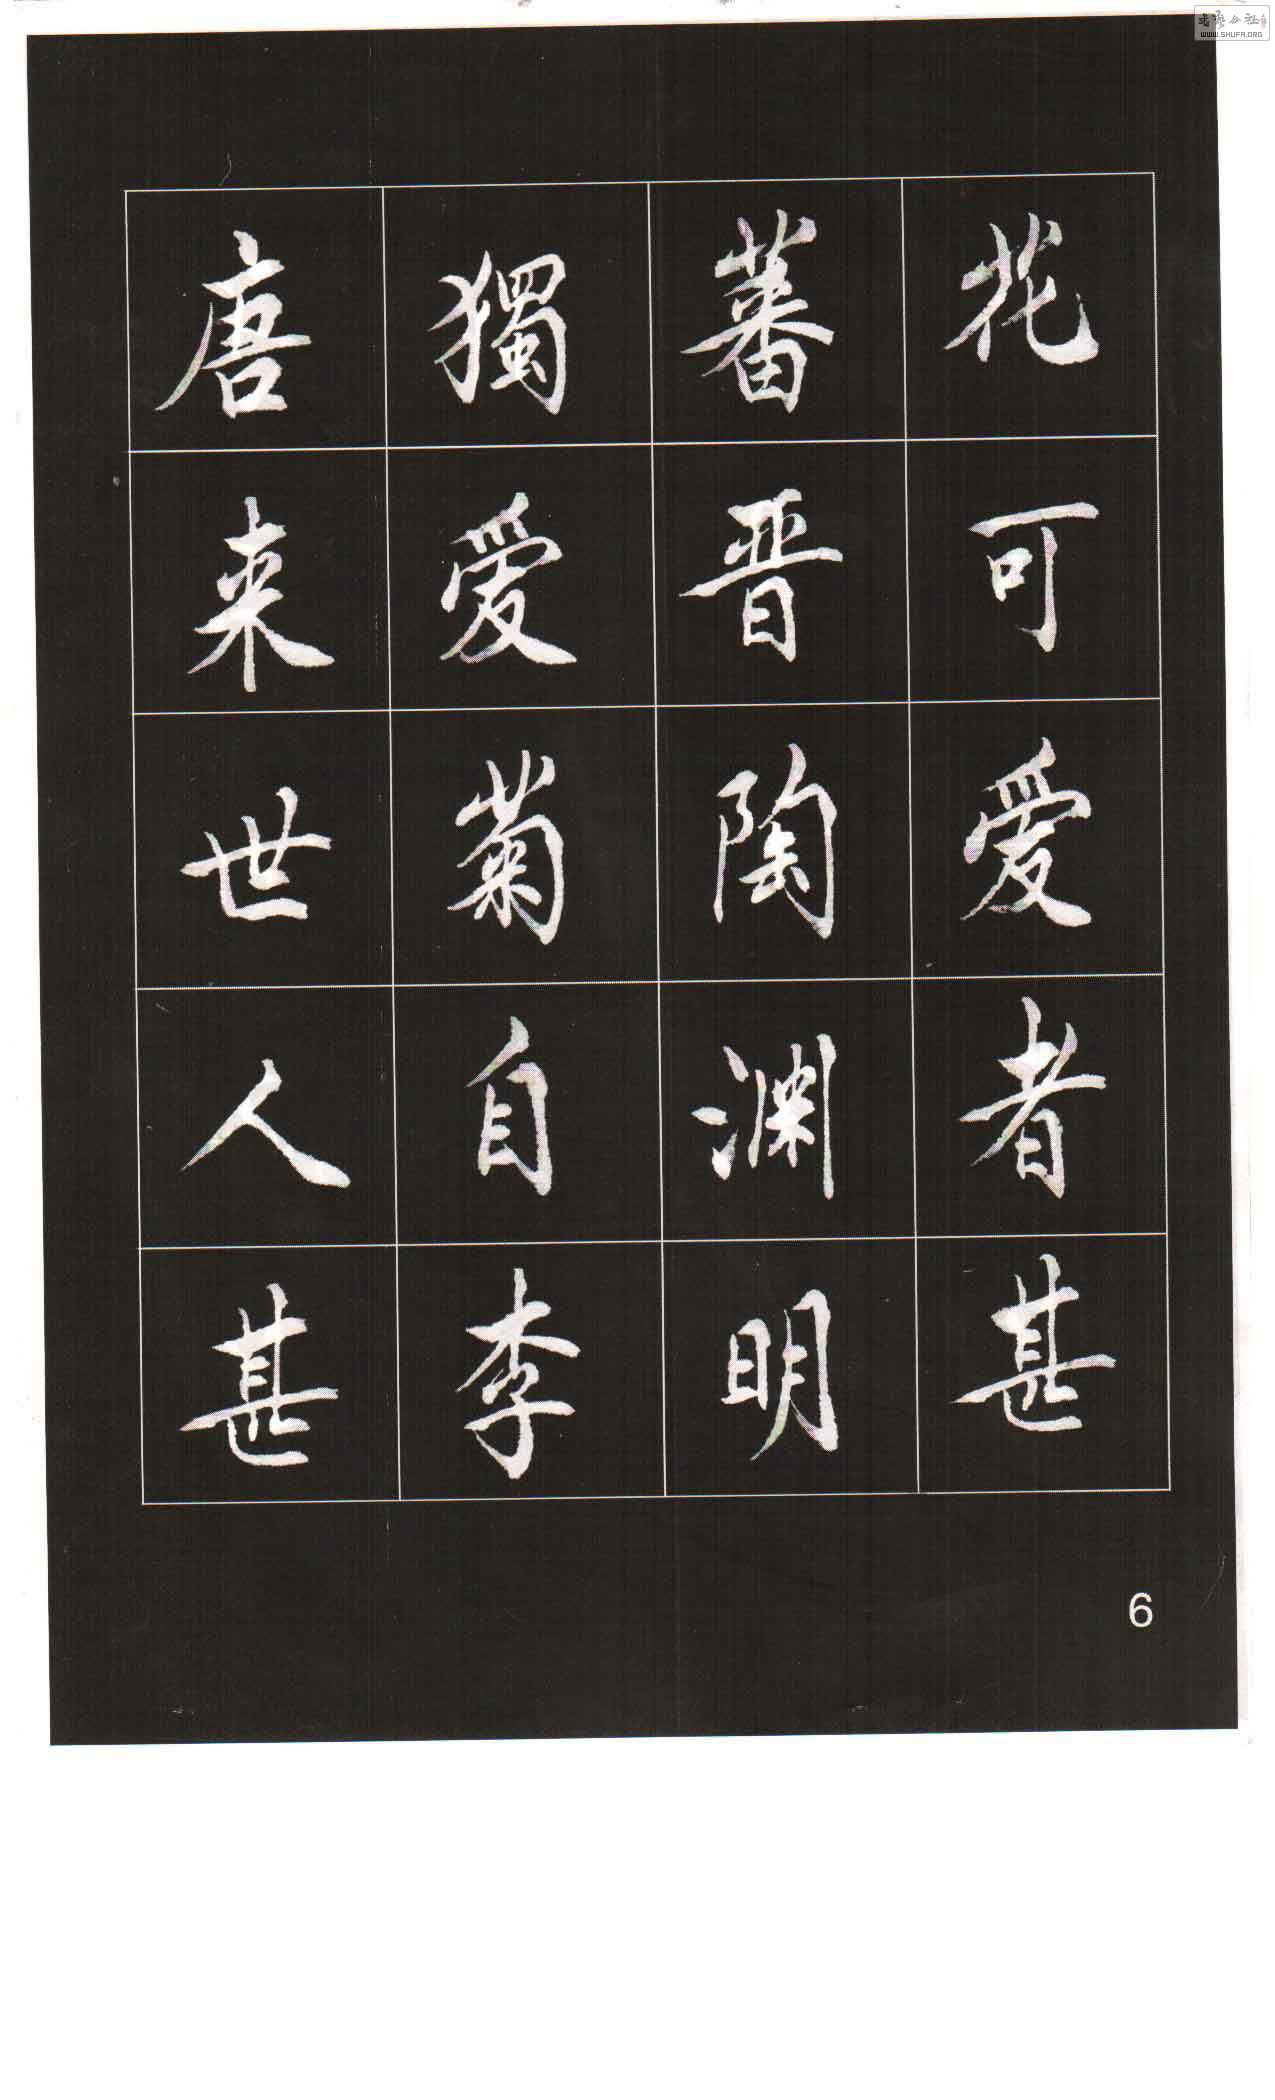 花可爱者甚
蕃晋陶渊明
獨爱菊自李
唐来世人甚
6
WWW.SHUFA.ORG